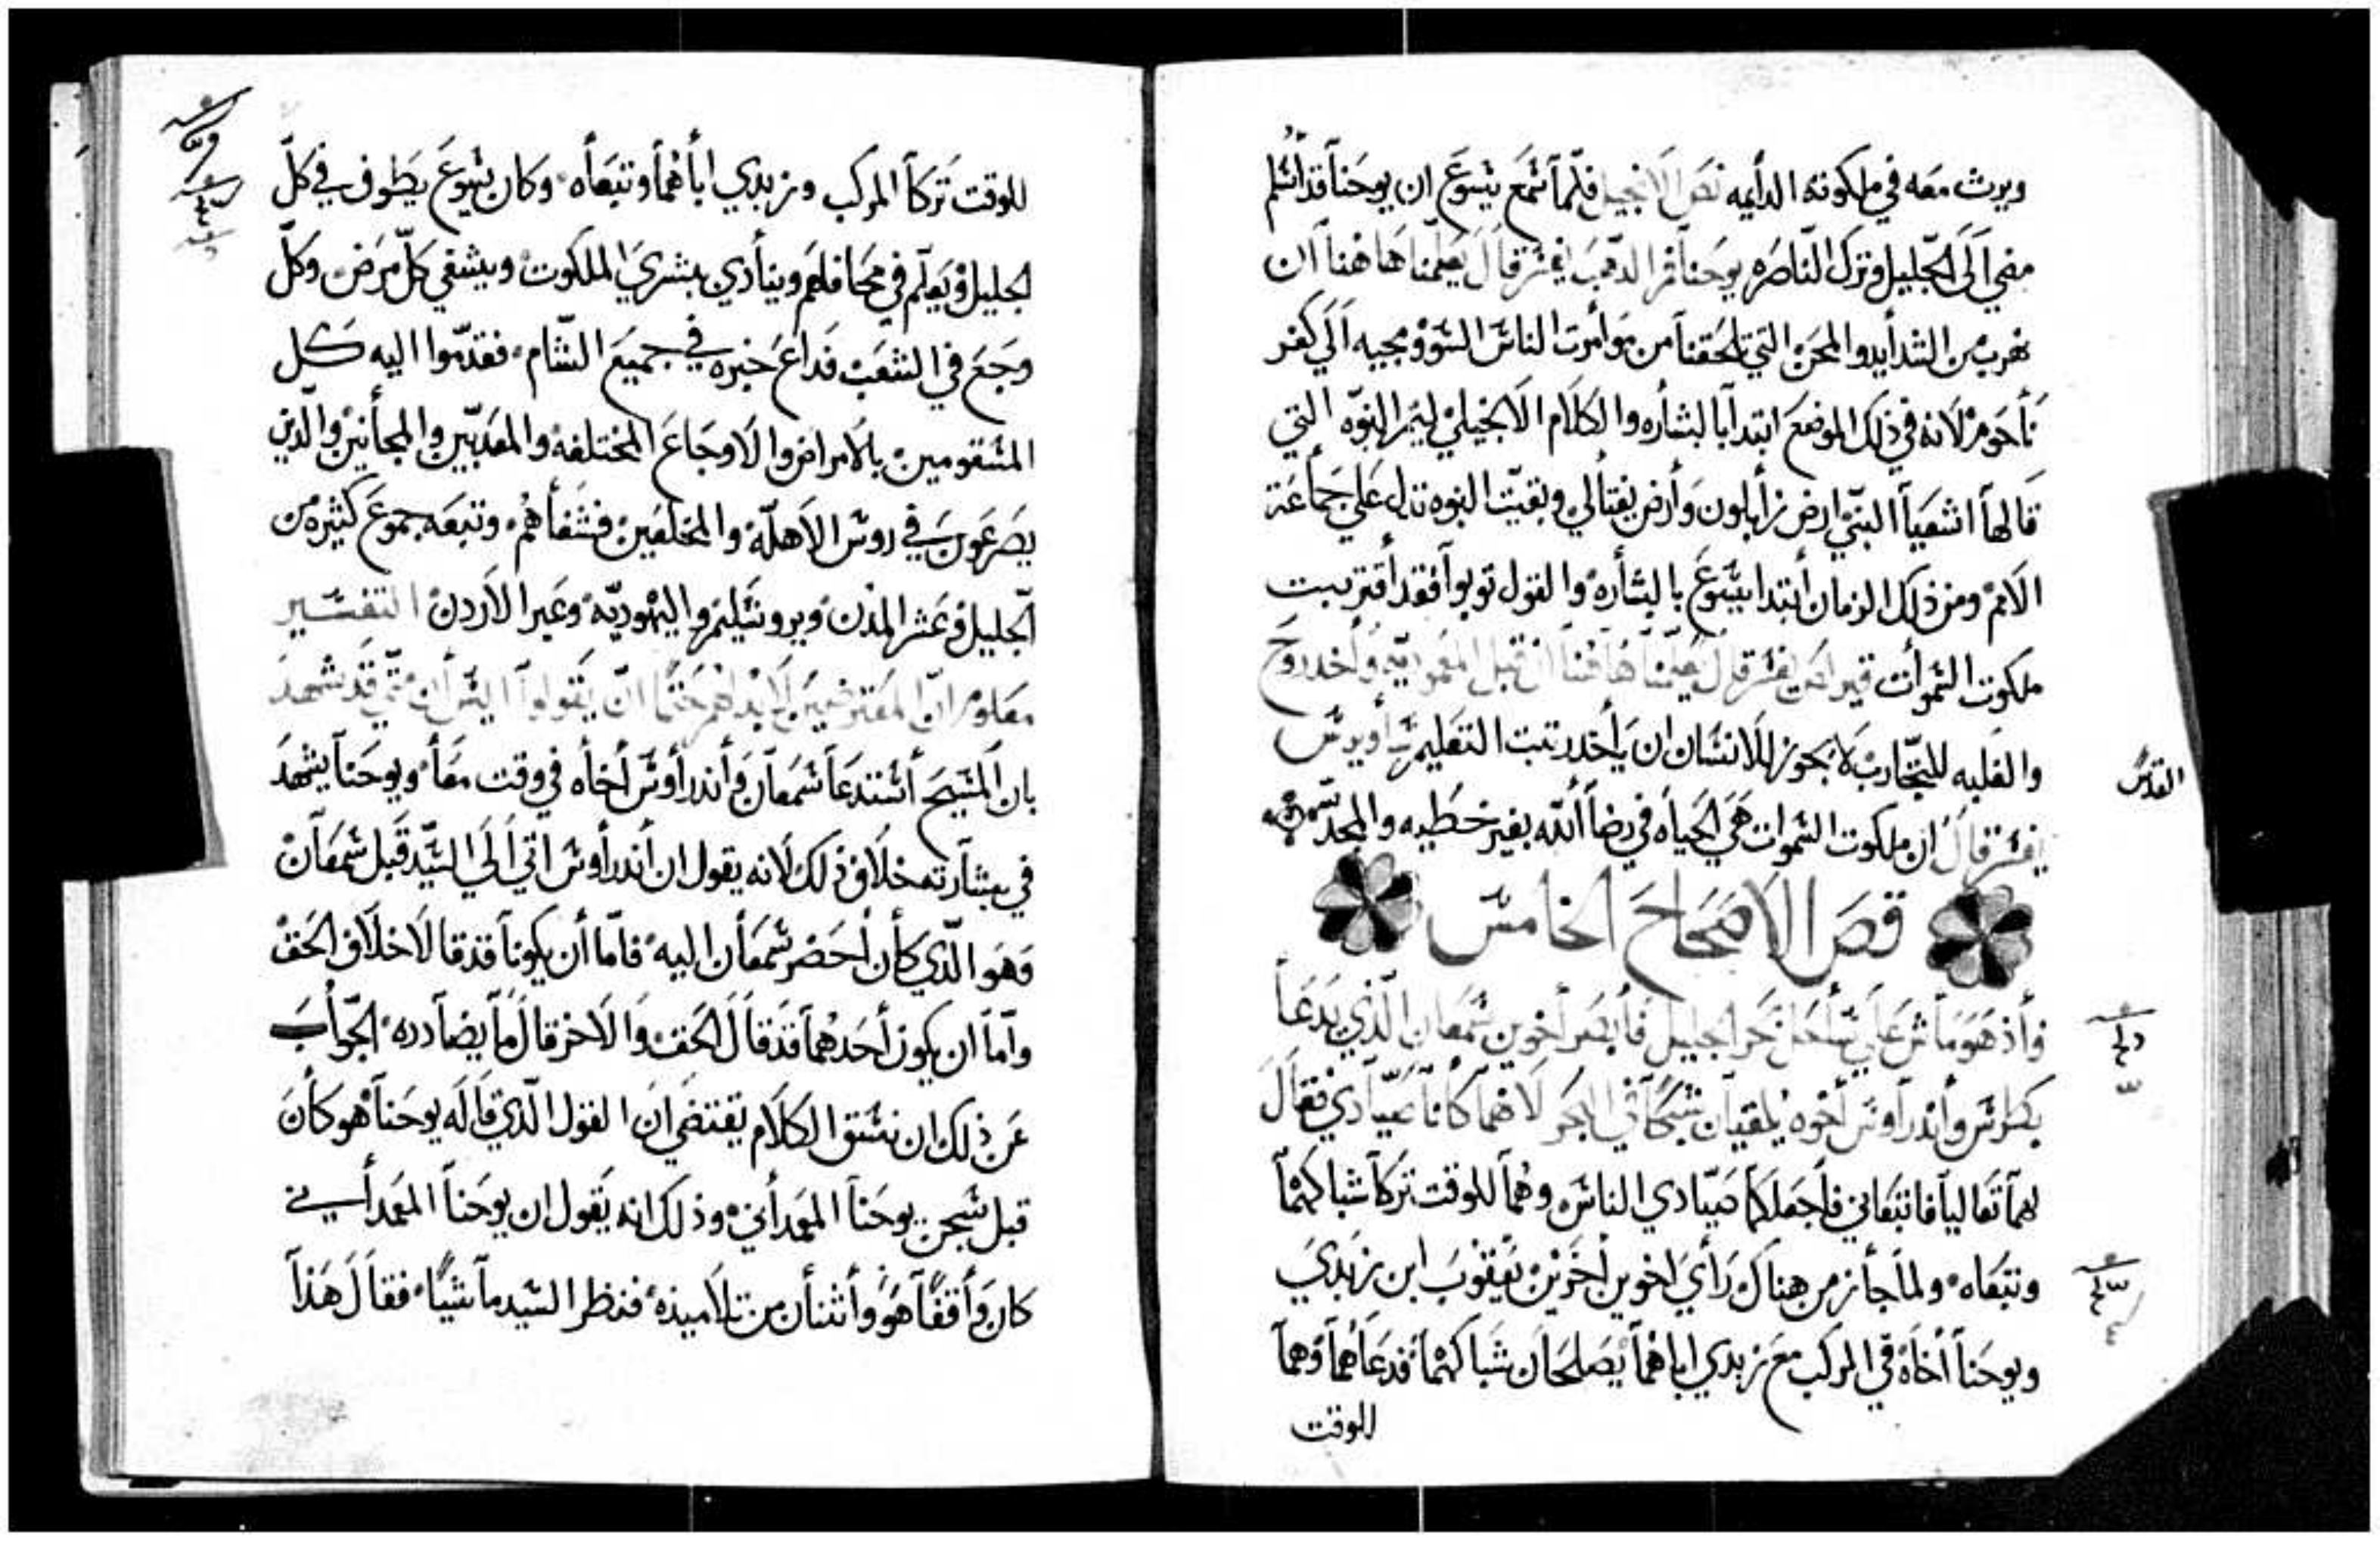 ويرث معه في ملكوته الدأيمه نص الانجيل فلمآ سمع يسوع ان يوحنا قد أسلم
مضي الَي الجليل وترك الناصره يوحنا فم الدهب يفسر قال يعلمنا هاهنا ان
نهرب من الشدأيد والمحن التي تلحقنا من موأمرت الناس السوو مجيه الَي كفر
نأحوم لانه في ذلك الموضع ابتدا بالبشاره والكلام الانجيلي ليتم النبوه التي
قالها اشعيا النبي ارض زأبلون وأرض نفتالي وبقيت النبوه تدل علي جمأعة
الامم ومن ذلك الزمان أبتدا يسوع بالبشأره والقول توبوا فقد أقتربت
ملكوت السموأت قيرلص يفسر قال يعلمنا هاهنا ان قبل المعموديه وأخد روح
القدس
والغلبه للتجارب لا يجوز للانسان ان يأخد رتبت التعليم سأويرس
يفسر قال ان ملكوت السموات هي الحياه في رضا ألله بغير خطيه والمجد
قص الاصحاح الخامس
وأذ هو مأش علي سأحل بحر الجليل فأبصر أخوين سمعان الذي يدعا
بطرس وأندرأوس أخوه يلقيان شبكا في البحر لانهما كانا صيادي فقال
لهما تعاليا فاتبعاني فأجعلكما صيادي الناس وهما للوقت تركا شباكهما
وتبعاه ولما جأز من هناك رأي اخوين أخرين يعقوب ابن زبدي
ويوحنا أخاه في المركب مع زبدي اباهما يصلحان شباكهما فدعاهما وهما
للوقت
للوقت تركا المركب وزبدي ابأهما وتبعأه وكان يسوع يطوف في كل
الجليل ويعلم في محافلهم وينأدي ببشري الملكوت ويشفي كل مرض وكل
وجع في الشعب فداع خبره في جميع الشام فقدموا اليه كل
المسقومين بالامراض والاوجاع المختلفه والمعدبين والمجأنين والذين
يصرعون في روس الاهله والمخلعين فشفأهم وتبعه جموع كثيره من
الجليل وعشر المدن ويروشليم واليهوديه وعبر الاردن التفسير
معلوم ان المعترضين لابد لهم حتما ان يقولوا اليس أن متي قد شهد
بان المسيح أستدعا سمعان وأندرأوس أخأه في وقت معأ ويوحنا يشهد
في بشارته خلاف ذلك لانه يقول ان أندرأوس اتي الَي السيد قبل سمعان
وهو الذي كأن أحضر سمعأن اليه فاما أن يكونا قد قالا خلاف الحق
واما ان يكون أحدهما قد قال الحق والاخر قال مأ يضادده الجوأب
عن ذلك ان نسق الكلام يقتضي ان القول الذي قاله يوحنا هو كأن
قبل سجن يوحنا المعمدأني وذلك انه يقول ان يوحنا المعمدأني
كان وأقفا هو وأثنأن من تلاميذه فنظر السيد مأشيا فقال هذا